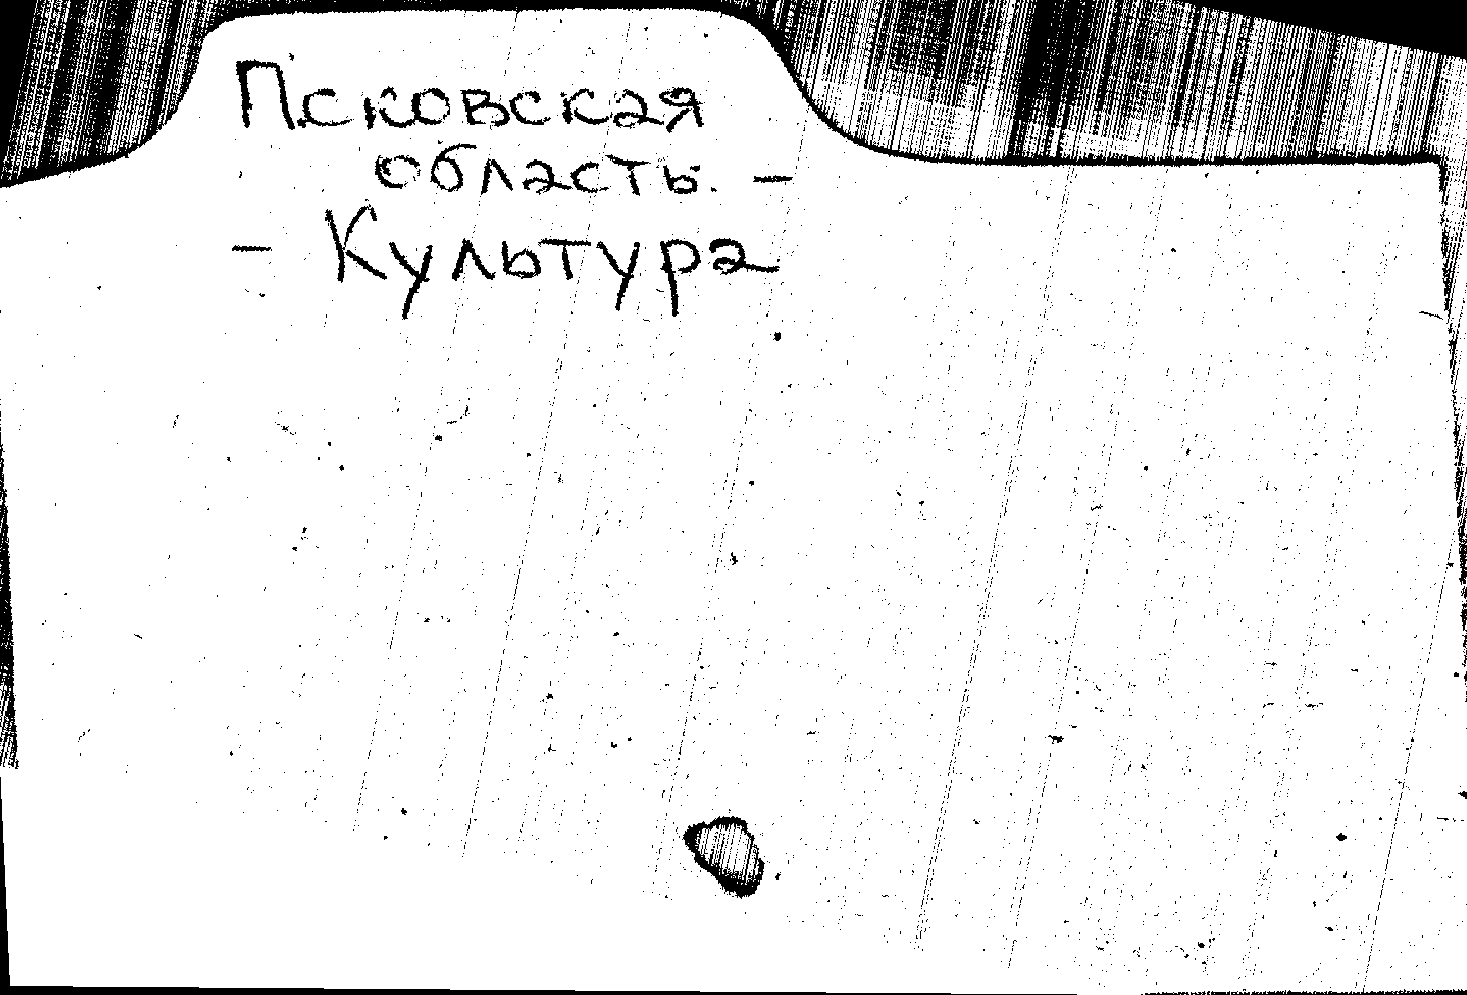 Псковская
область. -
- Культура